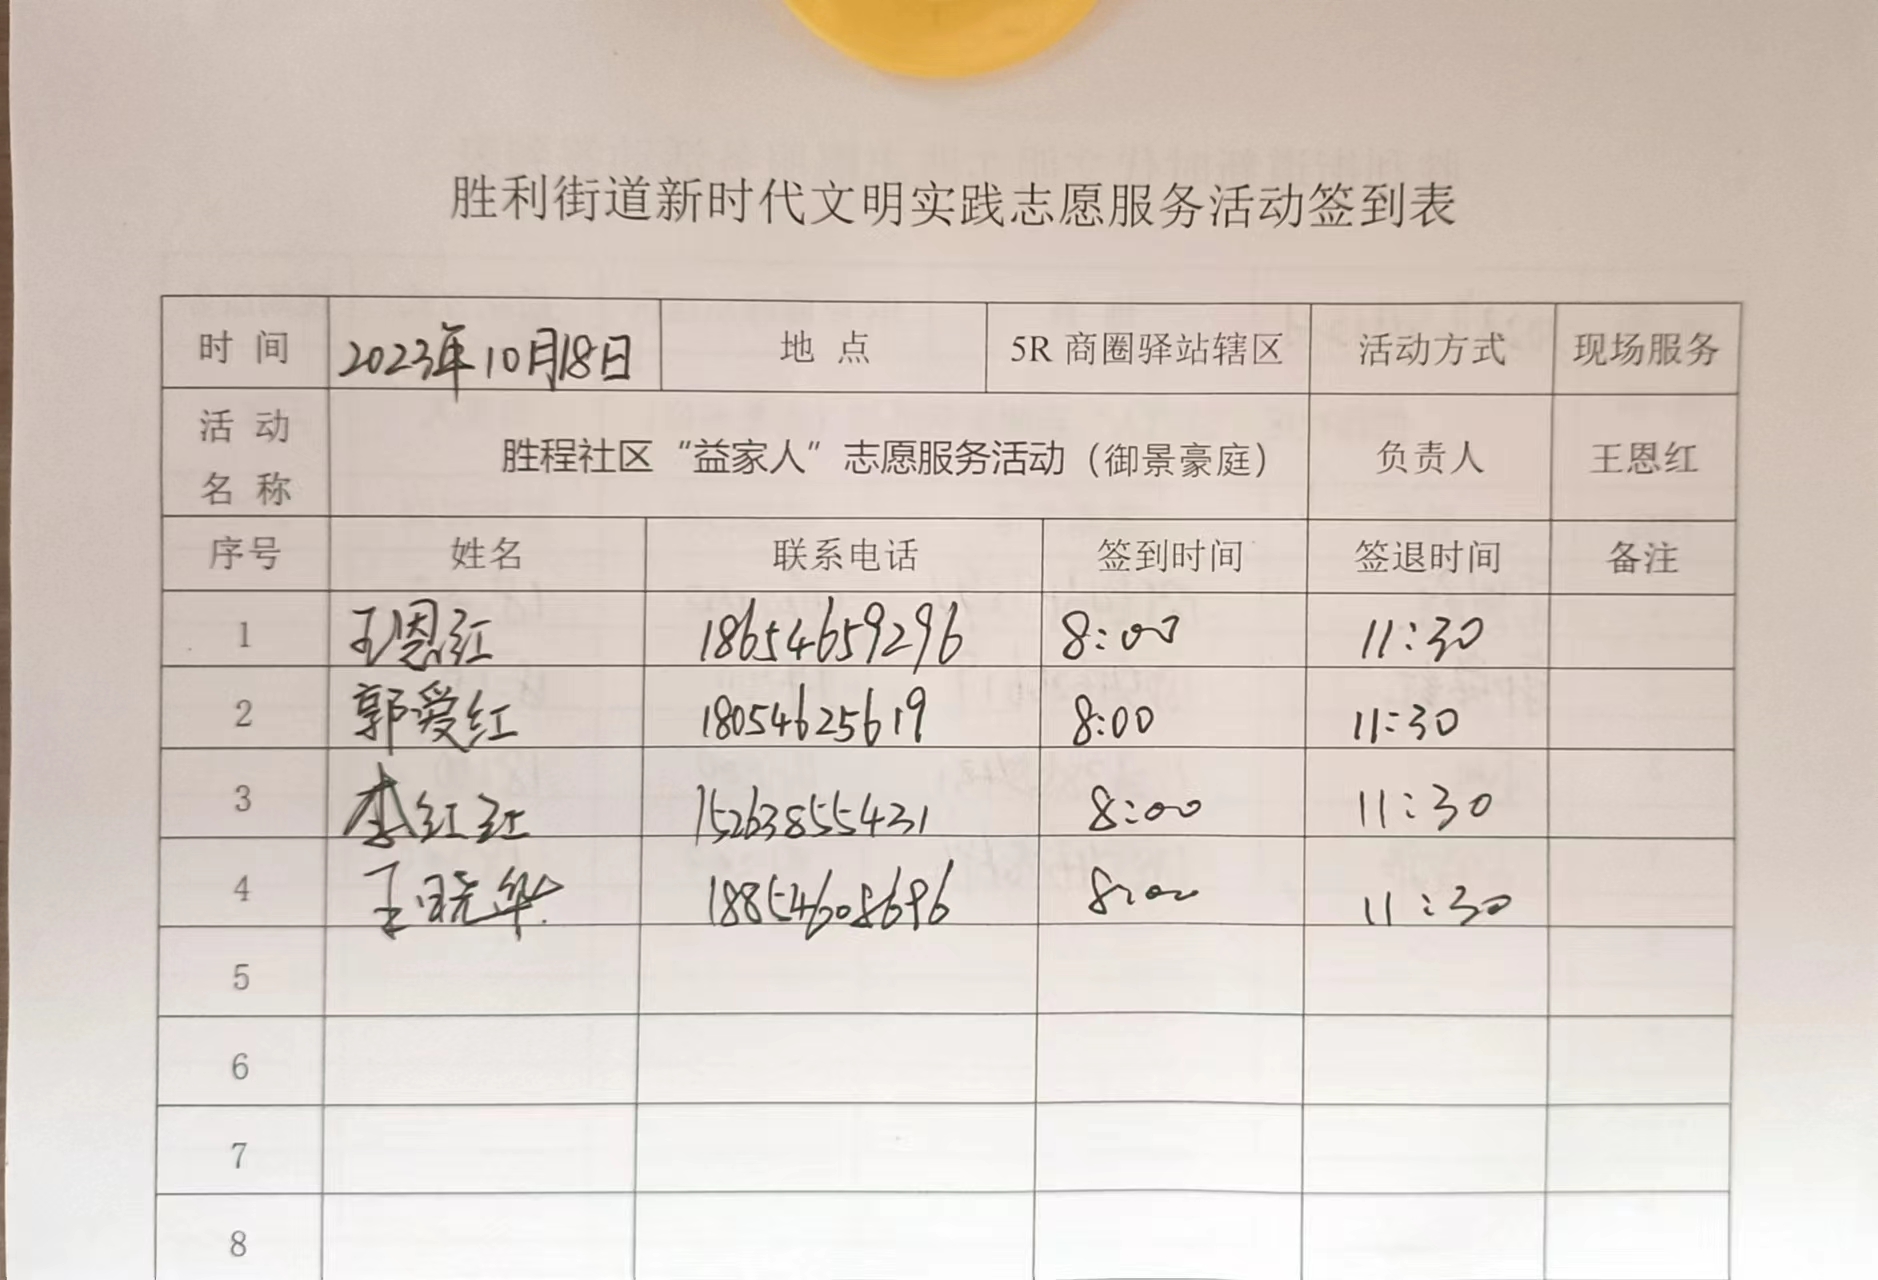 胜利街道新时代文明实践志愿服务活动签到表
时 间 2023年10月18日 地 点 5R 商圈驿站辖区 活动方式 现场服务
活 动 名 称 胜程社区“益家人”志愿服务活动（御景豪庭） 负责人 王恩红
序号 姓名 联系电话 签到时间 签退时间 备注
1 王恩红 18654659296 8:00 11:30
2 郭爱红 18054625619 8:00 11:30
3 李红红 15263855431 8:00 11:30
4 王晓华 18854608696 8:00 11:30
5
6
7
8